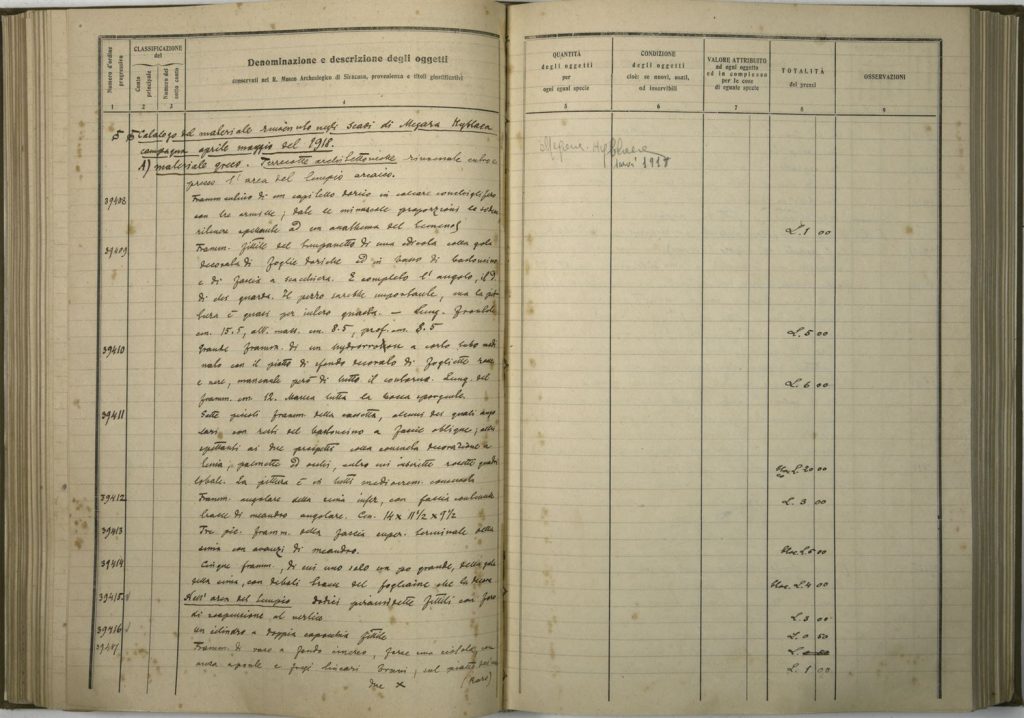 Numero d'ordine progressivo
CLASSIFICAZIONE del
Conto principale
Numero del sotto conto
Denominazione e descrizione degli oggetti
conservati nel R. Museo Archeologico di Siracusa, provenienza e titoli giustificativi
1 2 3 4
Catalogo del materiale rinvenuto negli scavi di Megara Hyblaea
campagna aprile maggio del 1918.
A) materiale greco. Terrecotte architettoniche rinvenute entro e
presso l'area del tempio arcaico.
39408 Framm. di un capitello dorico in calcare
con tre armille; date le minuscole proporzioni
ad un anathema del temenos
39409 Framm. fittile del di una edicola colla gola
decorata di foglie doriche ed in basso di bastoncino
e di fascia a scacchiera. È completo l'angolo, il D.
di chi guarda. Il pezzo sarebbe importante, ma la pit
tura è quasi per intero guasta. — Lung. frontale
cm. 15.5, alt. mass. cm. 8.5, prof. cm. 8.5
39410 Grande framm. di un a corto tubo
con il piatto di sfondo decorato di foglioline rosse
e nere, mancante però di tutto il contorno. Lung. del
framm. cm. 12. Manca tutta la bocca sporgente.
39411 Sette piccoli framm. della cassetta, alcuni dei quali ango
lari con resti del bastoncino a fascie oblique; altri
spettanti ai due prospetti colla consueta decorazione a
palmette ed ovuli, entro cui inserite rosette quadri
lobate. La pittura è in tutti
39412 Framm. angolare della sima infer. con fascia contenente
tracce di meandro angolare. Cm. 14 x 11 1/2 x 9 1/2
39413 Tre pic. framm. della fascia super. terminale della
sima con avanzi di meandro.
39414 Cinque framm., di cui uno solo un po grande, della gola
della sima, con deboli tracce del fogliame che la decora
39415 Nell'area del tempio Dodici piramidette fittili con foro
di sospensione al vertice
39416 Un cilindro a doppia capocchia fittile
Framm. di vaso a fondo cinereo, forse una ciotola, con
due x
(Rari)
QUANTITÀ degli oggetti per ogni egual specie
CONDIZIONE degli oggetti cioè: se nuovi, usati, od inservibili
VALORE ATTRIBUITO ad ogni oggetto ed in complesso per le cose di eguale specie
TOTALITÀ dei prezzi
OSSERVAZIONI
5 6 7 8 9
Megara Hyblaea
L. 1 00
L. 5 00
L. 6 00
L. 20 00
L. 3 00
L. 5 00
L. 4 00
L. 3 00
L. 0 50
L. 1 00